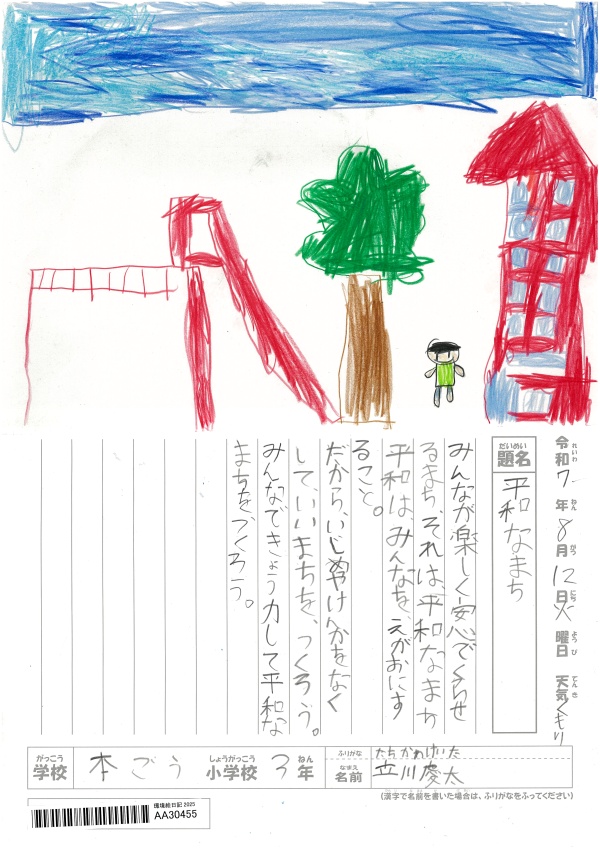 令和7年8月12日火曜日 天気くもり
れいわ ねん がつ にち ようび てんき
だいめい
題名 平和なまち
みんなが楽しく安心でくらせ
るまち、それは、平和なまち
平和は、みんなを、えがおにす
ること。
だから、いじめやけんかをなく
して、いいまちを、つくろう。
みんなできょう力して平和な
まちを、つくろう。
がっこう しょうがっこう ねん ふりがな たちかわけいた
学校 本ごう 小学校 3年 なまえ 名前 立川慶太
(漢字で名前を書いた場合は、ふりがなをふってください)
環境絵日記 2025
AA30455